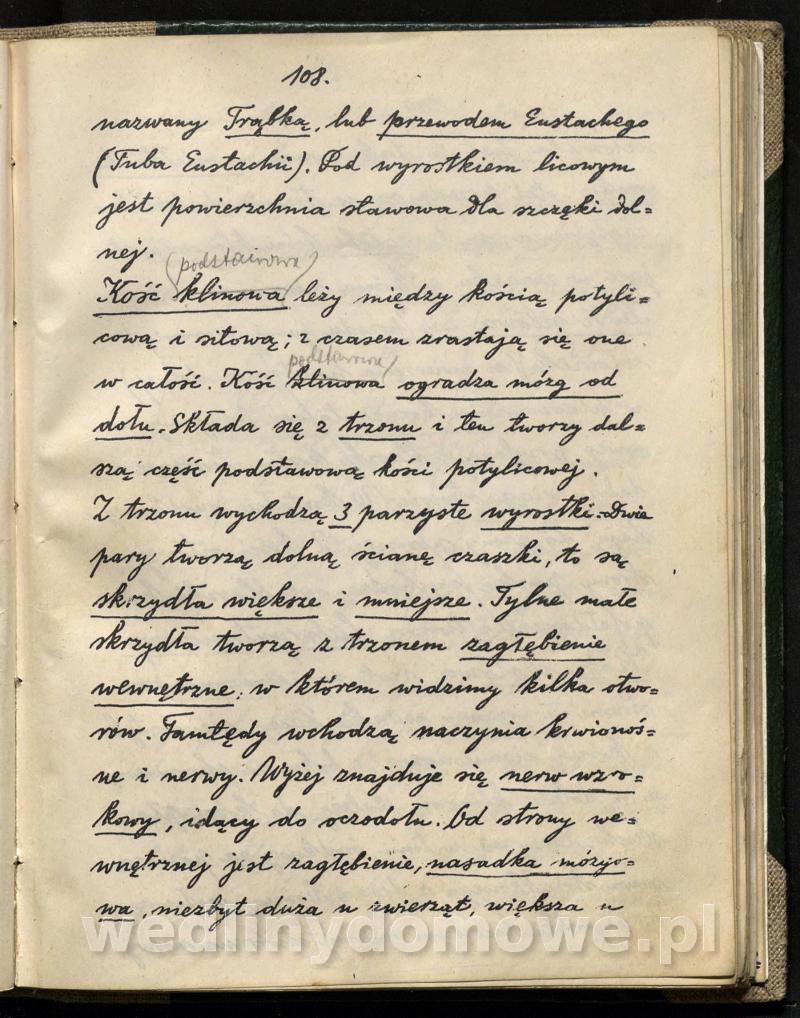 108.
nazwany Trąbką, lub przewodem Eustachego
(Tuba Eustachii). Pod wyrostkiem licowym
jest powierzchnia stawowa dla szczęki dol=
nej.
(podstawowa)
Kość klinowa leży między kością potyli=
cową i sitową; z czasem zrastają się one
podstawowa/
w całość. Kość klinowa ogradza mózg od
dołu. Składa się z trzonu i ten tworzy dal=
szą część podstawową kości potylicowej.
Z trzonu wychodzą 3 parzyste wyrostki. Dwie
pary tworzą dolną ścianę czaszki, to są
skrzydła większe i mniejsze. Tylne małe
skrzydła tworzą z trzonem zagłębienie
wewnętrzne, w którem widzimy kilka otwo=
rów. Tamtędy wchodzą naczynia krwionoś=
ne i nerwy. Wyżej znajduje się nerw wzro=
kowy, idący do oczodołu. Od strony we=
wnętrznej jest zagłębienie, nasadka mózgo=
wa, niezbyt duża u zwierząt, większa u
wedlinydomowe.pl